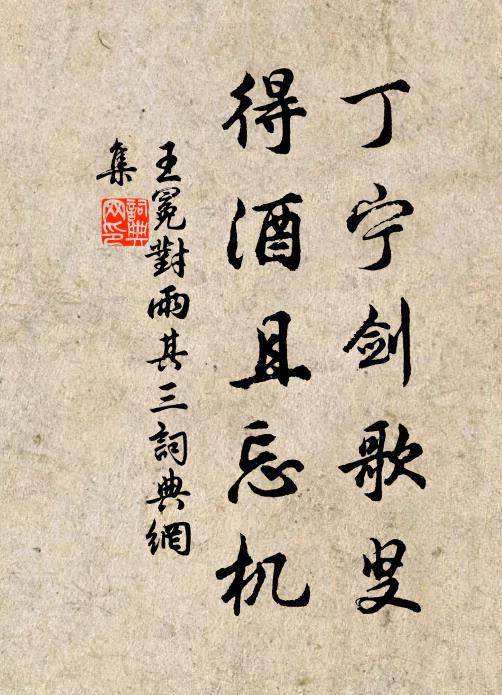 丁宁剑歌叟
得酒且忘机
王冕對雨其三詞典網
集
詞典网印